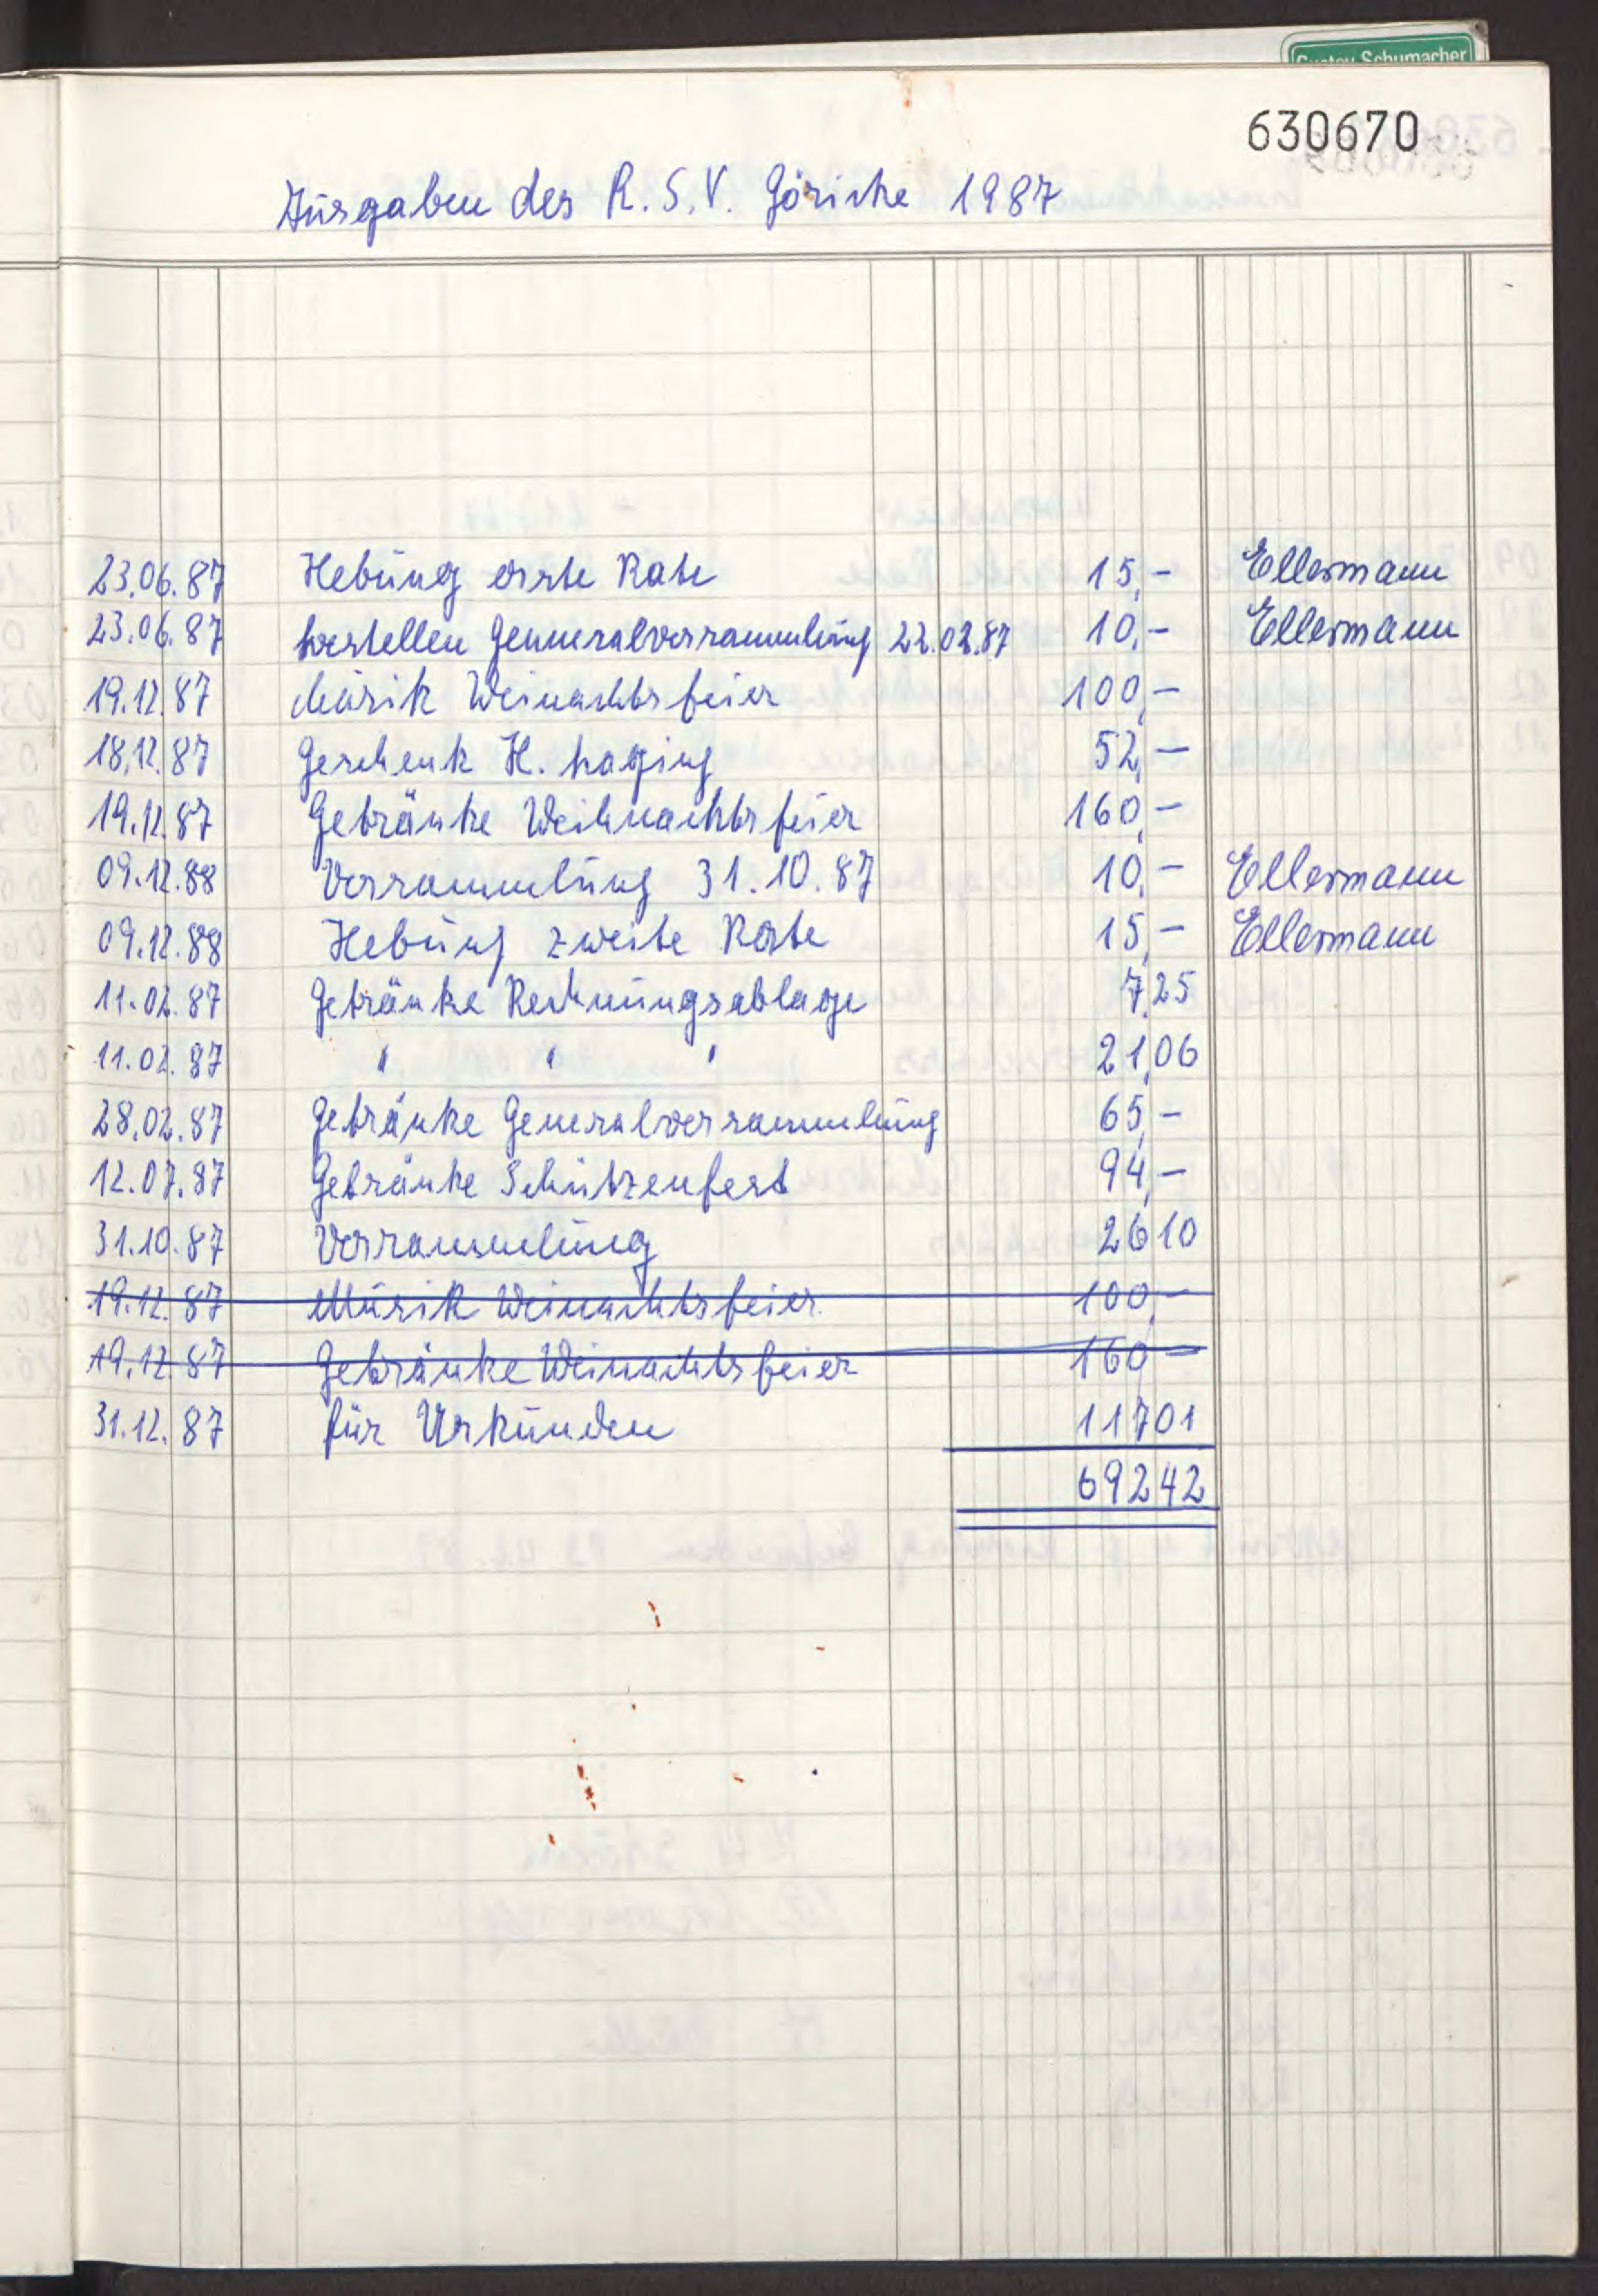 Gustav Schumacher
630670
Ausgaben des R.S.V. Göricke 1987
23.06.87 Hebung erste Rate 15,- Ellermann
23.06.87 bestellen Genneralversammlung 22.02.87 10,- Ellermann
19.12.87 Musik Weinachtsfeier 100,-
18.12.87 Geschenk H. 52,-
19.12.87 Getränke Weihnachtsfeier 160,-
09.12.88 Versammlung 31.10.87 10,- Ellermann
09.12.88 Hebung zweite Rate 15,- Ellermann
11.02.87 Getränke Rechnungsablage 7,25
11.02.87 " " " 21,06
28.02.87 Getränke Generalversammlung 65,-
12.07.87 Getränke Schützenfest 94,-
31.10.87 Versammlung 26 10
19.12.87 Musik Weinachtsfeier 100,-
19.12.87 Getränke Weinachtsfeier 160 -
31.12.87 für Urkunden 117 01
692 42